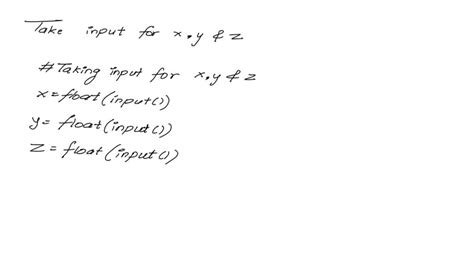 Take input for x, y & z
#Taking input for x, y & z
x = float(input())
y = float(input())
z = float(input())